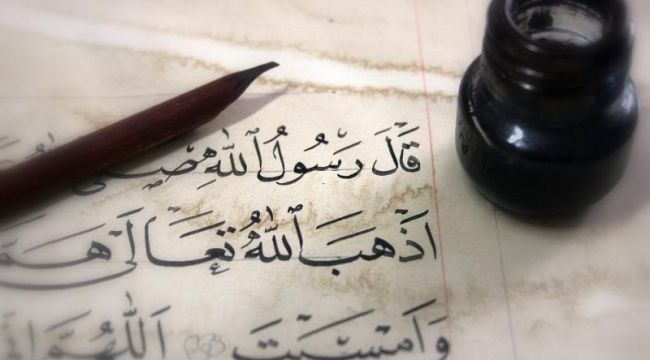 قَالَ رَسُولُ اللّٰهِ صَلَّى
اَذْهَبَ اللّٰهُ تَعَالَى هَمَّ
وَاَمْسَيْتَ اَللّٰهُمَّ اِنِّي